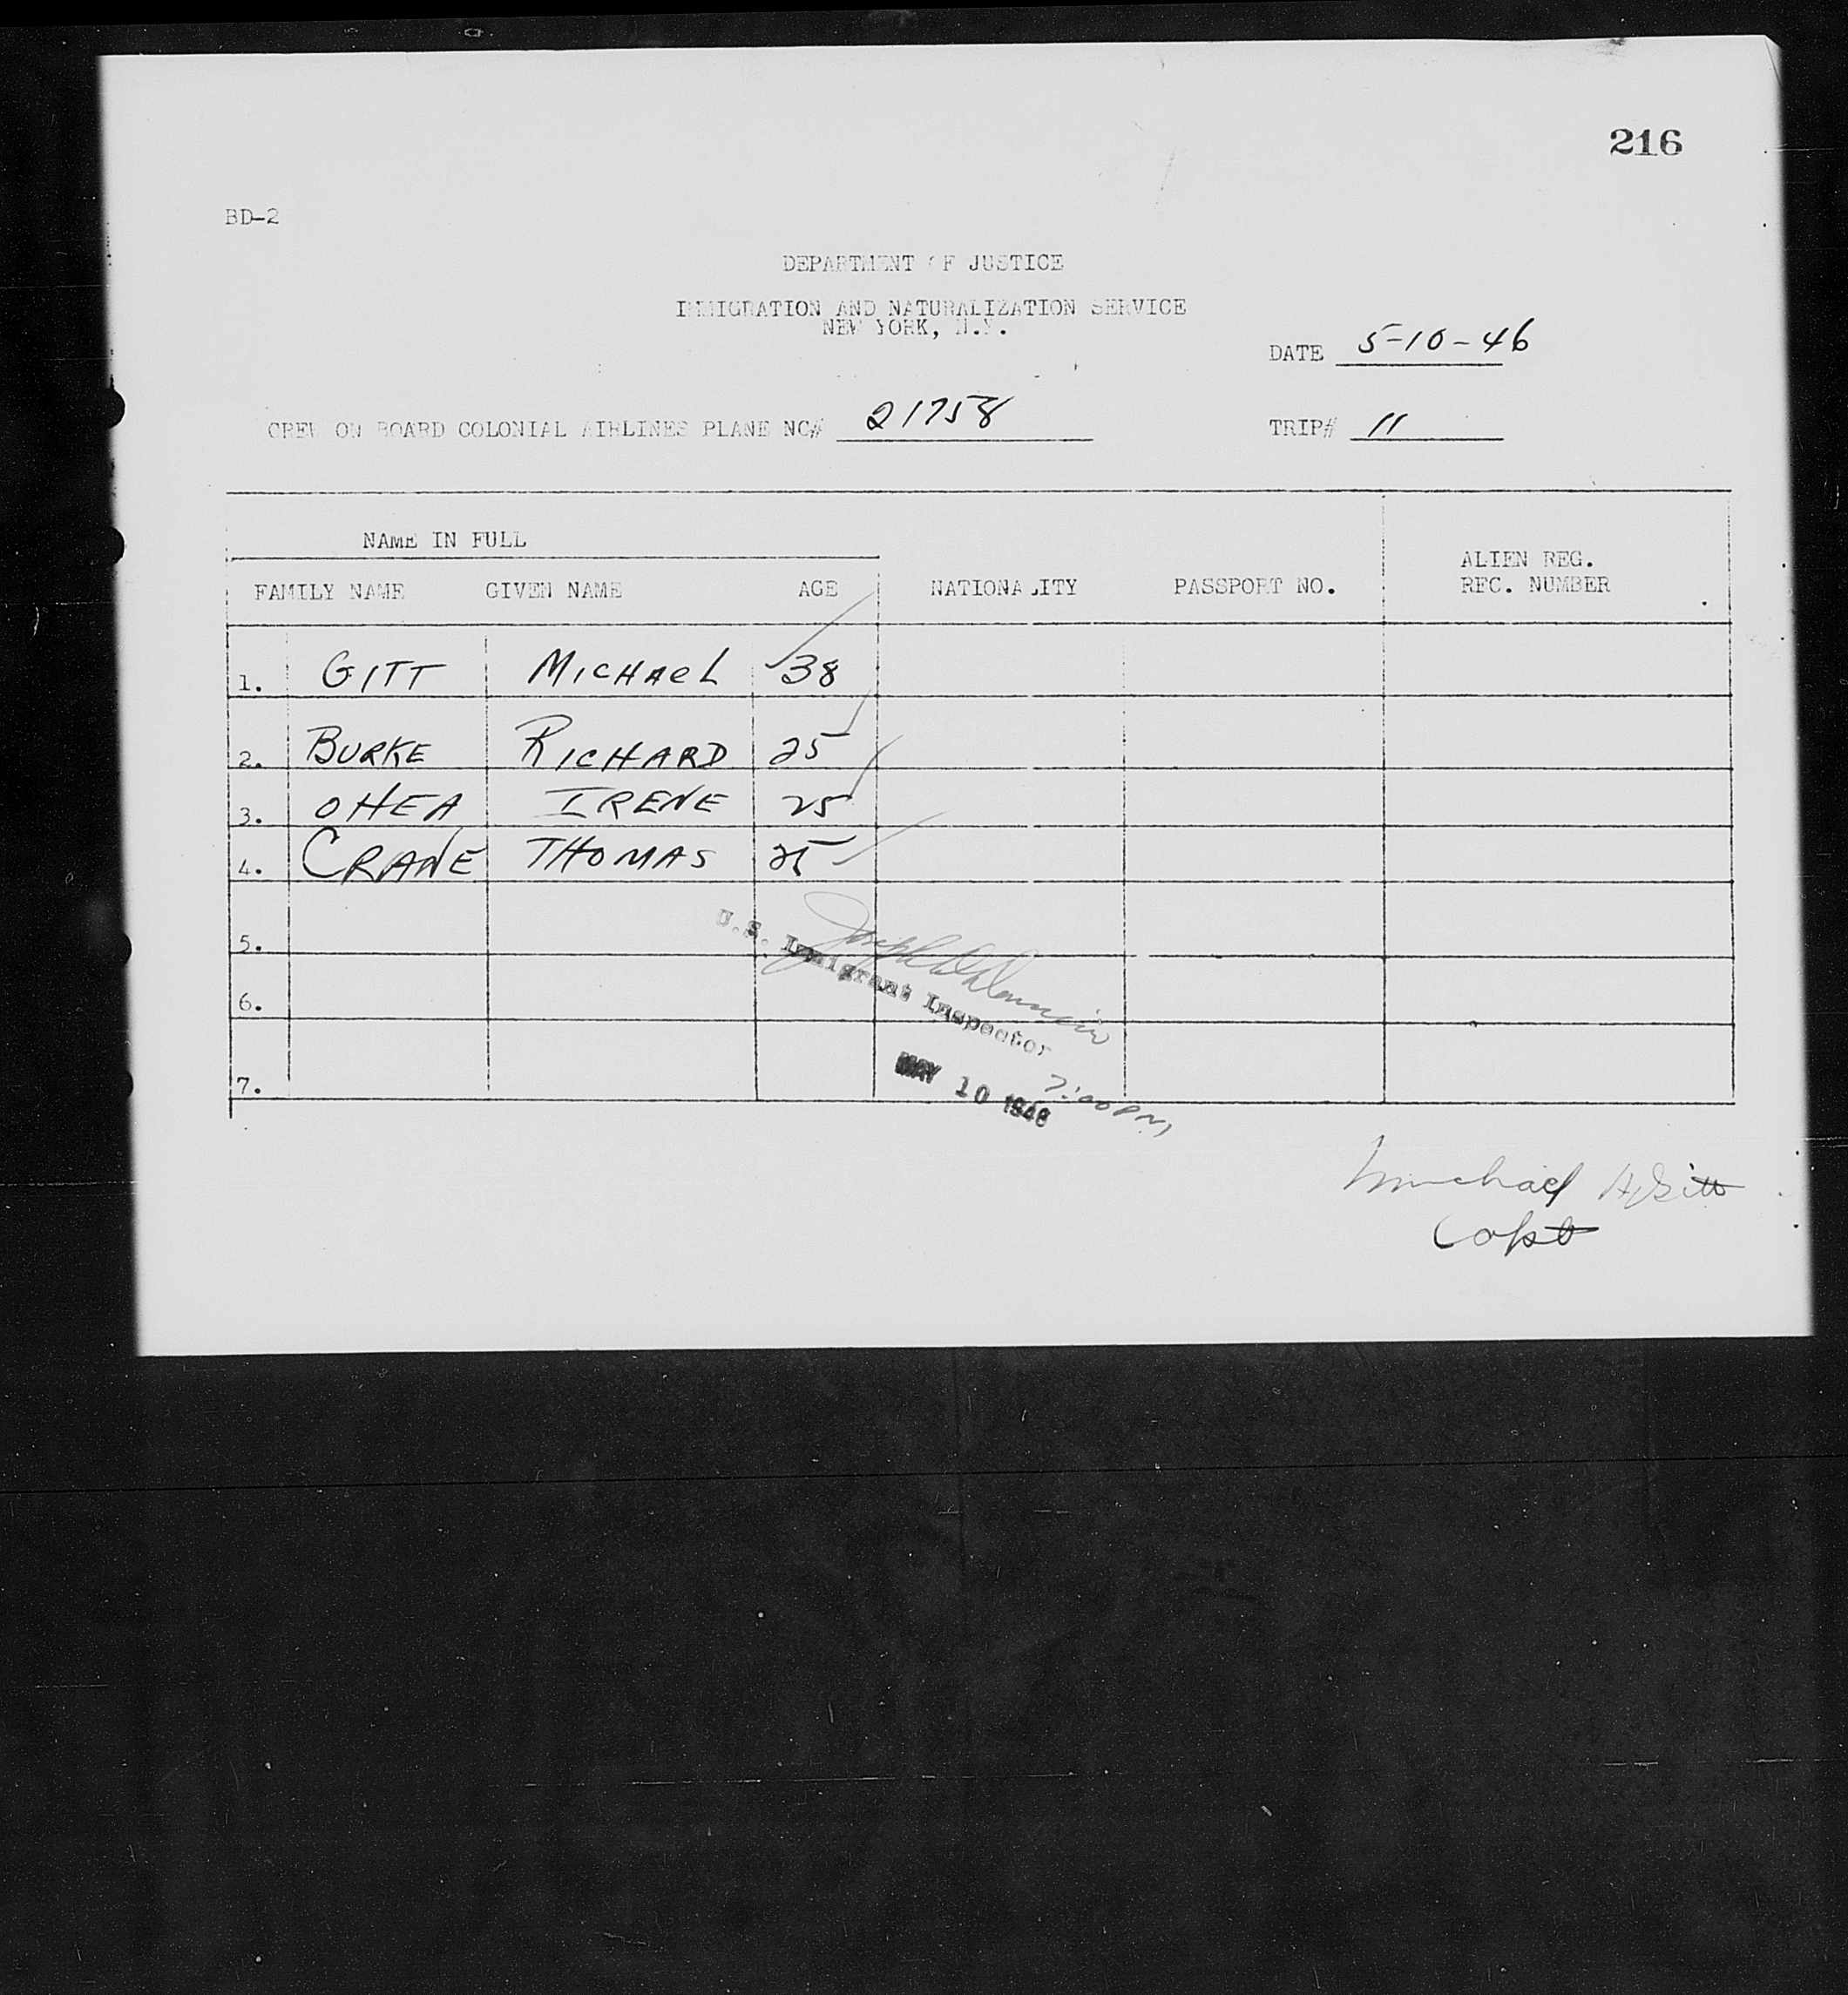 216
BD-2
DEPARTMENT OF JUSTICE
IMMIGRATION AND NATURALIZATION SERVICE
NEW YORK, N.Y.
DATE 5-10-46
CREW ON BOARD COLONIAL AIRLINES PLANE NC# 21758 TRIP# 11
NAME IN FULL
ALIEN REG.
FAMILY NAME GIVEN NAME AGE NATIONALITY PASSPORT NO. REC. NUMBER
1. GITT MICHAEL 38
2. BURKE RICHARD 25
3. OHEA IRENE 25
4. CRANE THOMAS 25
5.
6.
7.
U.S. Immigrant Inspector
MAY 10 1946 7:00 PM
Michael Gitt
Capt